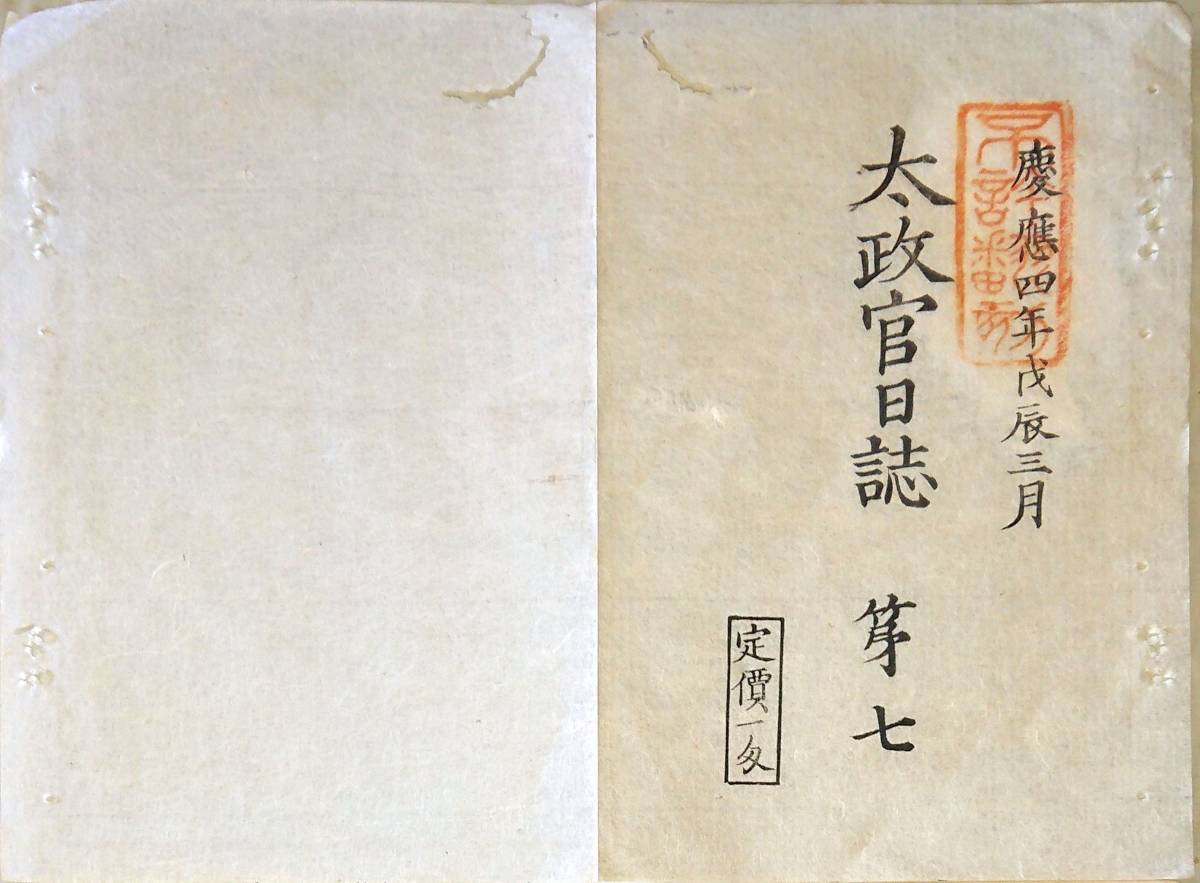 慶應四年戊辰三月
太政官日誌 第七
定價一匁